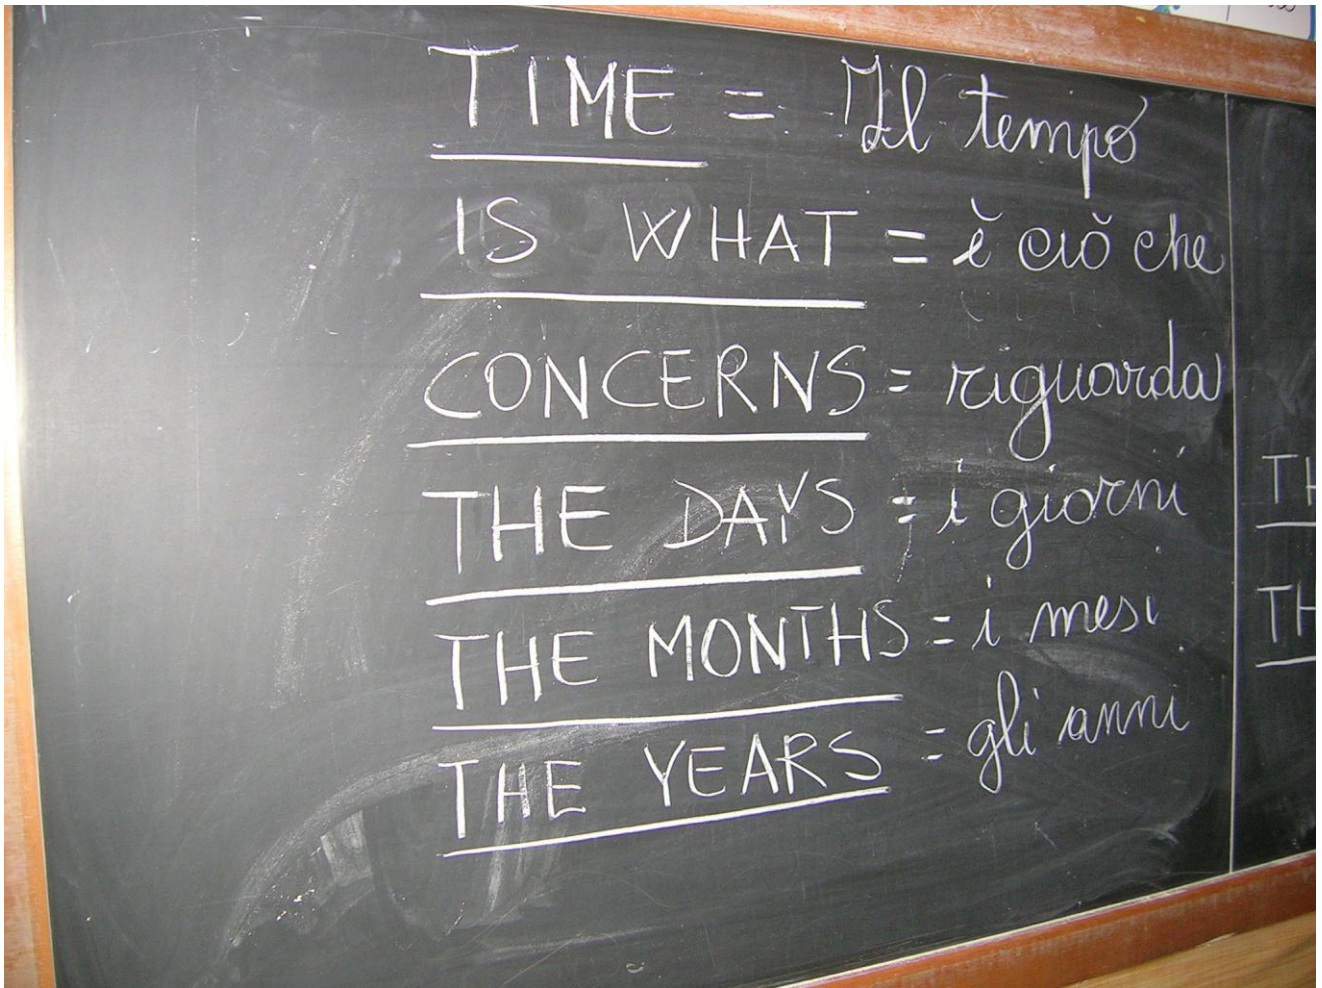 TIME = Il tempo
IS WHAT = è ciò che
CONCERNS = riguarda
THE DAYS = i giorni
THE MONTHS = i mesi
THE YEARS = gli anni
TH
TH